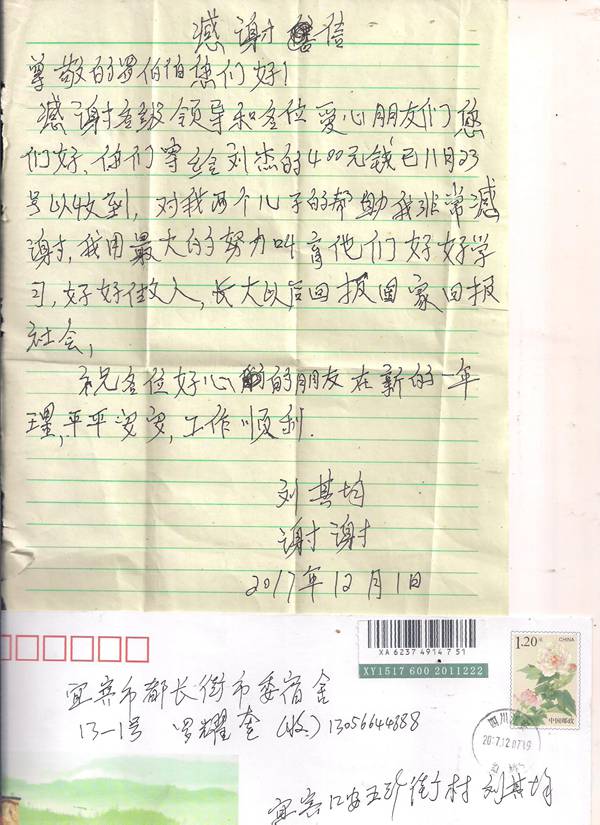 感谢信
尊敬的罗伯伯您们好!
感谢各级领导和各位爱心朋友们您
们好、你们寄给刘杰的400元钱已11月23
号以收到,对我两个儿子的帮助我非常感
谢,我用最大的努力叫育他们好好学
习,好好住做人,长大以后回报国家回报
社会,
祝各位好心的朋友在新的一年
理,平平安安,工作顺利.
刘其均
谢谢
2017年12月1日
XA 6237 4914 7 51
XY1517 600 2011222
1.20元
CHINA
中国邮政
四川
2017.12.07.19
宜宾市都长街市委宿舍
13-1号 罗耀奎(收)13056644888
宜宾 街村 刘其均